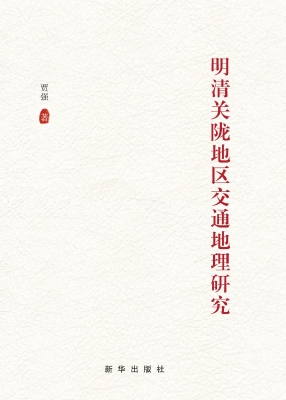 明清关陇地区交通地理研究
贾强
著
新华出版社